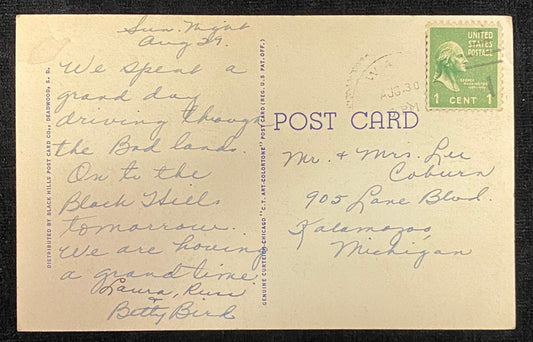 Sun. Night
Aug 29.
We spent a
grand day
driving through
the Bad lands.
On to the
Black Hills
tomorrow.
We are having
a grand time
Laura, Russ
&
Betty Bird
DISTRIBUTED BY BLACK HILLS POST CARD CO., DEADWOOD, S. D.
GENUINE CURTEICH-CHICAGO "C.T. ART-COLORTONE" POST CARD (REG. U.S. PAT. OFF.)
POST CARD
UNITED
STATES
POSTAGE
1 CENT 1
AUG 30
PM
Mr. & Mrs. Lee
Coburn
905 Lane Blvd.
Kalamazoo,
Michigan